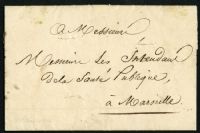 A Messieurs
Messieurs Les Intendant
De la Santé Publique,
à Marseille